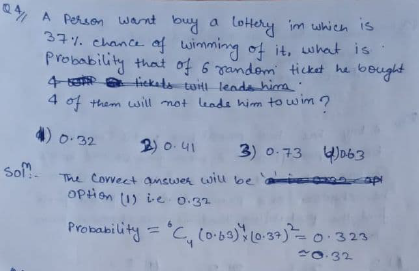 Q 4//
A Person want buy a lottery in which is
37% chance of winning of it, what is
Probability that of 6 random ticket he bought
4 tickets will leads him
4 of them will not leads him to win?
1) 0.32 2) 0.41 3) 0.73 4) 0.63
Solⁿ:- The correct answer will be
option (1) i.e 0.32
Probability = ⁶C₄ (0.63)⁴ x (0.37)² = 0.323
≈ 0.32